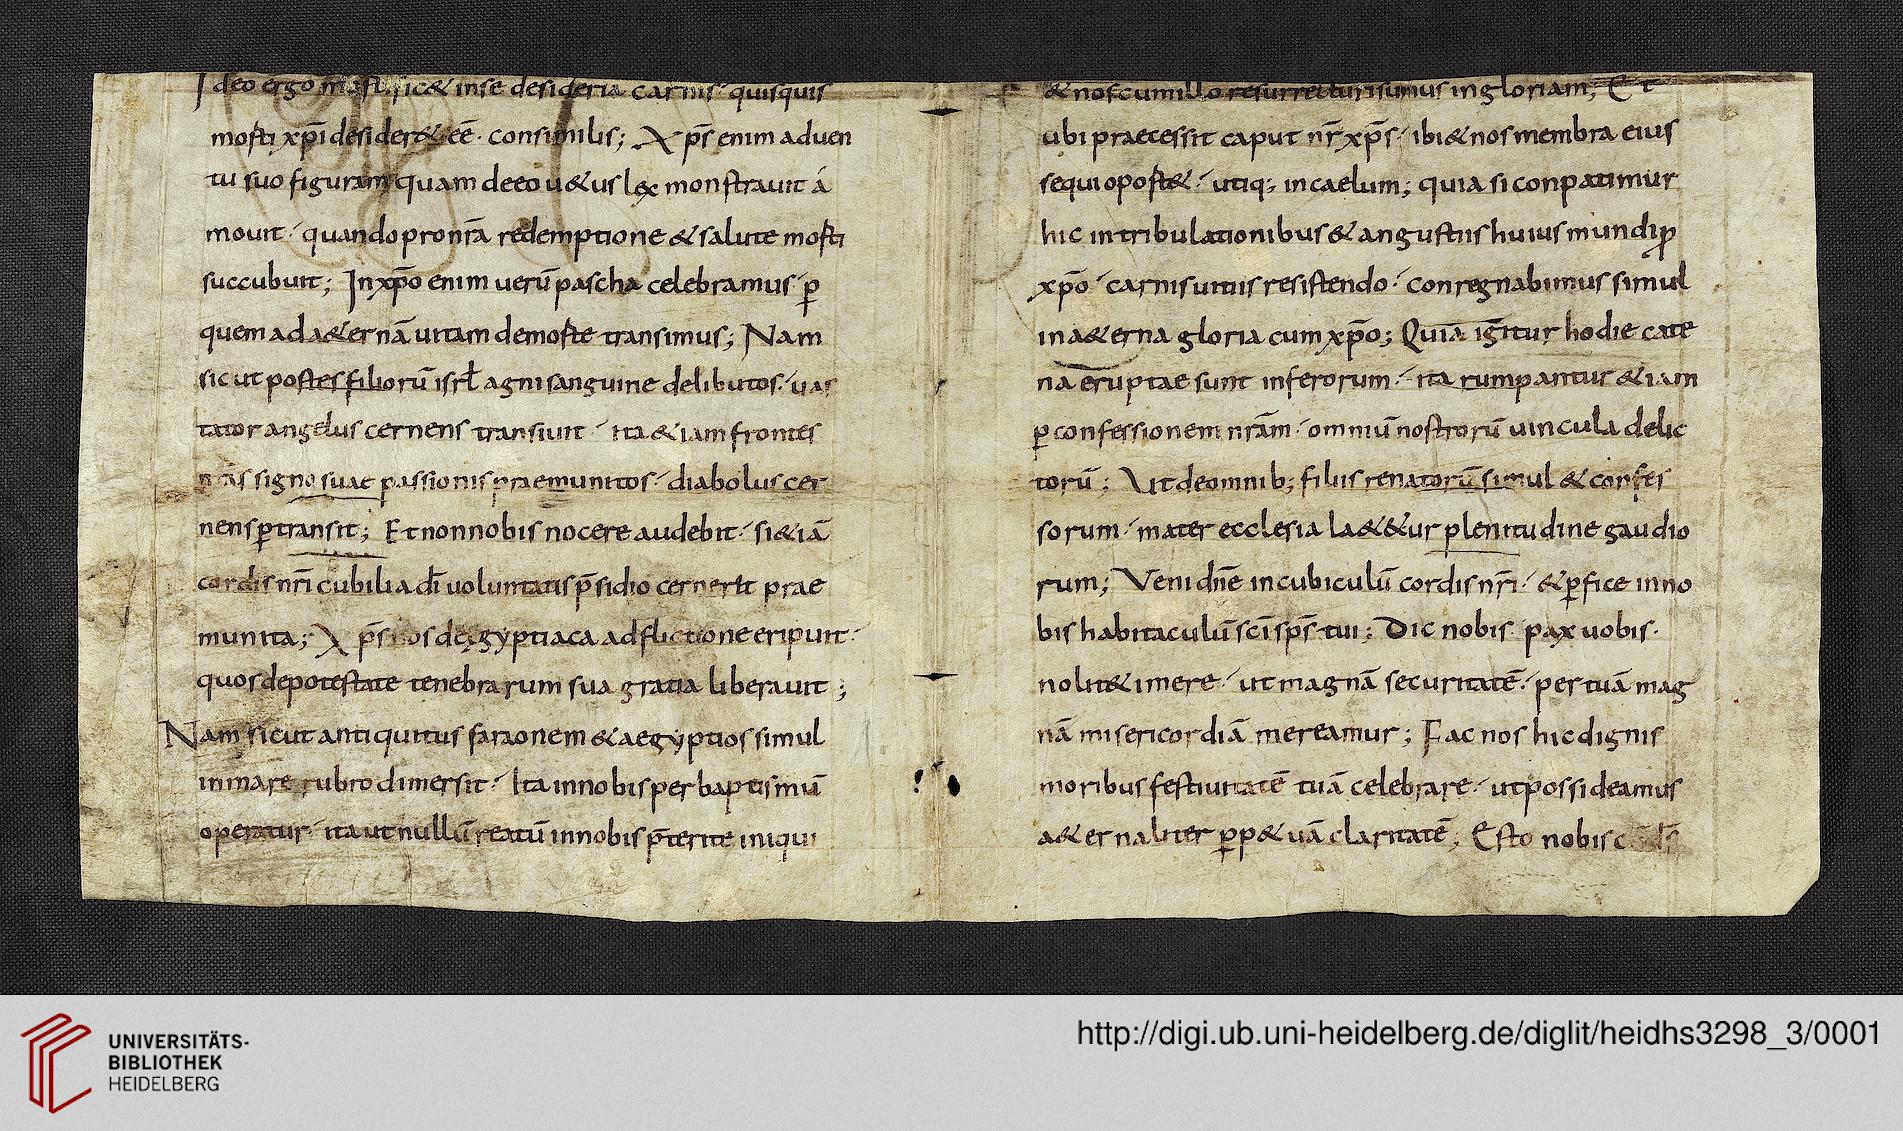 Ideo ergo mortific& inse desideria carnis · quisquis
morti xp̄i desider& eē · consimilis; Xp̄s enim aduen
tu suo figuram quam deeo u&us lex monstrauit a
mouit · quando pronr̄a redemptione & salute morti
succubuit; Inxp̄o enim uerū pascha celebramus · ꝑ
quem ad a&ernā uitam demorte transimus; Nam
sicut postes filiorū isrl̄ agni sanguine delibutos · uas
tator angelus cernens transiuit · ita &iam frontes
nr̄as signo suae passionis praemunitos · diabolus cer
nens ꝑtransit; Et non nobis nocere audebit · si &iā
cordis nr̄i cubilia dī uoluntatis p̄sidio cernerit prae
munita; Xp̄s nos deęgyptiaca adflictione eripuit ·
quos depotestate tenebrarum sua gratia liberauit;
Nam sicut antiquitus faraonem & aegyptios simul
inmare rubro dimersit · Ita innobis per baptismū
operatur · ita ut nullū reatū innobis p̄terite iniqui
& nos cum illo resurrecturi sumus in gloriam; Et
ubi praecessit caput nr̄ xp̄s · ibi & nos membra eius
sequi oport& · utiq; in caelum; quia si conpatimur
hic in tribulationibus & angustiis huius mundi ꝑ
xp̄o · carnis uitiis resistendo · conregnabimus simul
in a&erna gloria cum xp̄o; Quia igitur hodie cate
na eruptae sunt inferorum · ita rumpantur &iam
ꝑ confessionem nr̄am · omniū nostrorū uincula delic
torū; Ut deomnib; filiis renatorū simul & confes
sorum · mater ecclesia la&&ur plenitudine gaudio
rum; Veni dn̄e in cubiculū cordis nr̄i · & ꝑfice inno
bis habitaculū scī sp̄s tui; Dic nobis pax uobis ·
nolit& imere · ut magnā securitatē · per tuā mag
nā misericordiā mereamur; Fac nos hic dignis
moribus festiuitatē tuā celebrare · ut possideamus
a&ernaliter ꝑp&uā claritatē; Esto nobis
UNIVERSITÄTS-
BIBLIOTHEK
HEIDELBERG
http://digi.ub.uni-heidelberg.de/diglit/heidhs3298_3/0001